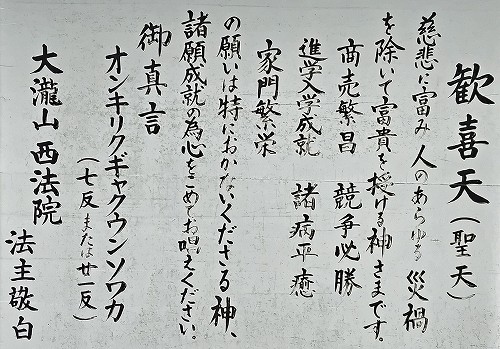 歓喜天（聖天）
慈悲に富み人のあらゆる災禍
を除いて富貴を授ける神さまです。
商売繁昌　競争必勝
進学入学成就　諸病平癒
家門繁栄
の願いは特におかないくださる神、
諸願成就の為心をこめてお唱えください。
御真言
オンキリクギャクウンソワカ
（七反または廿一反）
大瀧山西法院
法主敬白